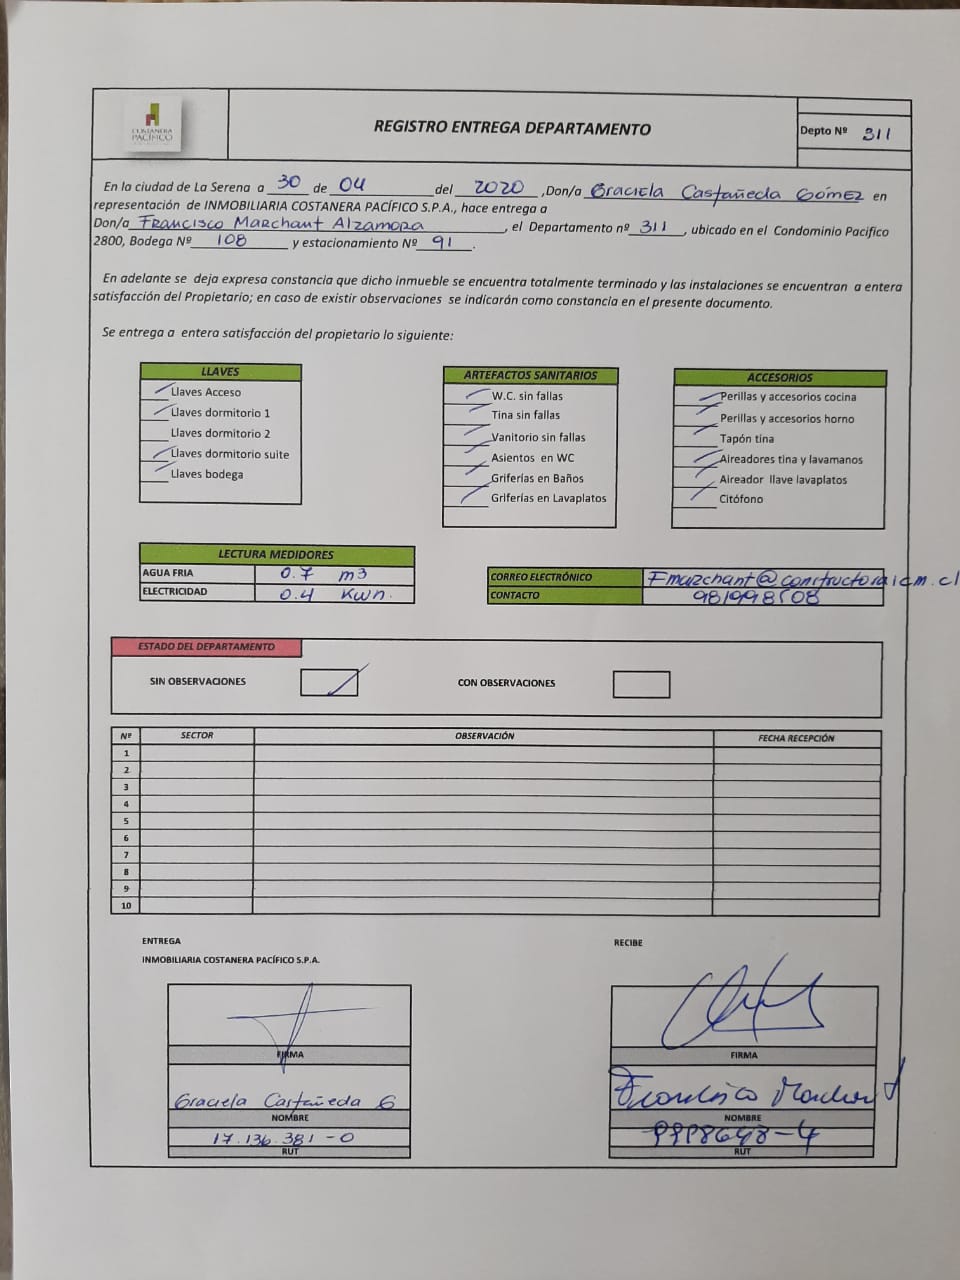 COSTANERA
PACÍFICO
REGISTRO ENTREGA DEPARTAMENTO
Depto Nº 311
En la ciudad de La Serena a 30 de 04 del 2020 ,Don/a Graciela Castañeda Gómez en
representación de INMOBILIARIA COSTANERA PACÍFICO S.P.A., hace entrega a
Don/a Francisco Marchant Alzamora , el Departamento nº 311 , ubicado en el Condominio Pacifico
2800, Bodega Nº 108 y estacionamiento Nº 91 .
En adelante se deja expresa constancia que dicho inmueble se encuentra totalmente terminado y las instalaciones se encuentran a entera
satisfacción del Propietario; en caso de existir observaciones se indicarán como constancia en el presente documento.
Se entrega a entera satisfacción del propietario lo siguiente:
LLAVES
Llaves Acceso
Llaves dormitorio 1
Llaves dormitorio 2
Llaves dormitorio suite
Llaves bodega
ARTEFACTOS SANITARIOS
W.C. sin fallas
Tina sin fallas
Vanitorio sin fallas
Asientos en WC
Griferías en Baños
Griferías en Lavaplatos
ACCESORIOS
Perillas y accesorios cocina
Perillas y accesorios horno
Tapón tina
Aireadores tina y lavamanos
Aireador llave lavaplatos
Citófono
LECTURA MEDIDORES
AGUA FRIA 0.7 m3
ELECTRICIDAD 0.4 Kwh.
CORREO ELECTRÓNICO Fmarchant@constructoraicm.cl
CONTACTO 981998508
ESTADO DEL DEPARTAMENTO
SIN OBSERVACIONES
CON OBSERVACIONES
Nº SECTOR OBSERVACIÓN FECHA RECEPCIÓN
1
2
3
4
5
6
7
8
9
10
ENTREGA
INMOBILIARIA COSTANERA PACÍFICO S.P.A.
FIRMA
Graciela Castañeda G
NOMBRE
17.136.381-0
RUT
RECIBE
FIRMA
Francisco Marchant
NOMBRE
RUT